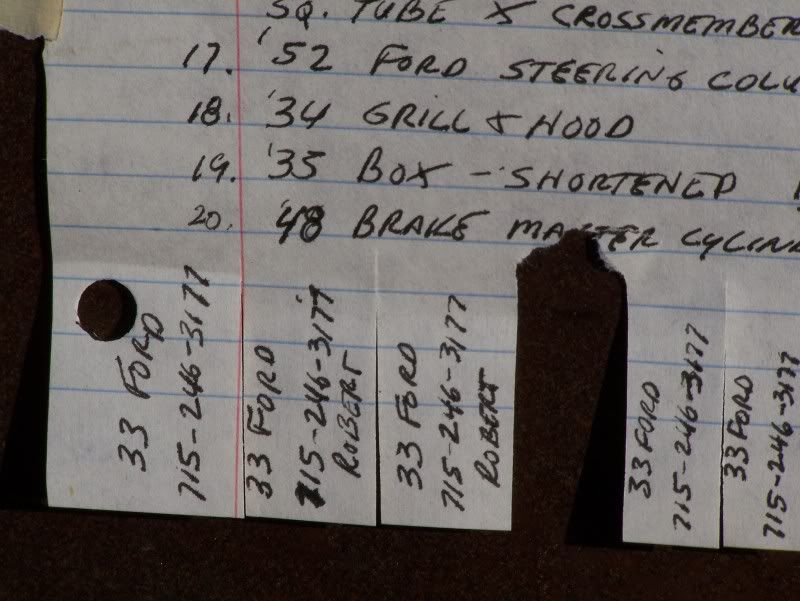 SQ. TUBE X CROSSMEMBER
17. '52 FORD STEERING COLU
18. '34 GRILL & HOOD
19. '35 BOX - SHORTENED
20. '48 BRAKE MASTER CYLIN
33 FORD
715-246-3177
33 FORD
715-246-3177
ROBERT
33 FORD
715-246-3177
ROBERT
33 FORD
715-246-3177
33 FORD
715-246-3177